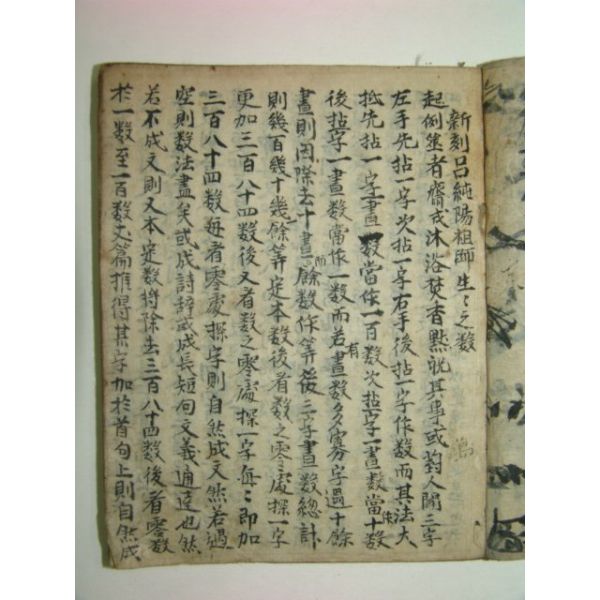 新刻呂純陽祖師生〻之数
起例筮者齋戒沐浴焚香黙祝其事或對人開三字
左手先拈一字次拈一字右手後拈一字作数而其法大
抵先拈一字一畫数當作一百数次拈字一畫数當作十数
後拈字一畫数當作一数而若有畫数多寡字過十餘
畫則因際去十畫而餘数作等後三字畫数總計
則幾百幾十幾餘筭定本数後看数之零處探一字
更加三百八十四数後又看数之零處探一字每〻即加
三百八十四数每看零處探字則自然成文然若遇
空則数法盡矣或成詩辞或成長短句文義通達也然
若不成文則又本定数将除去三百八十四数後看零数
於一数至一百数文篇推得其字加於首句上則自然成